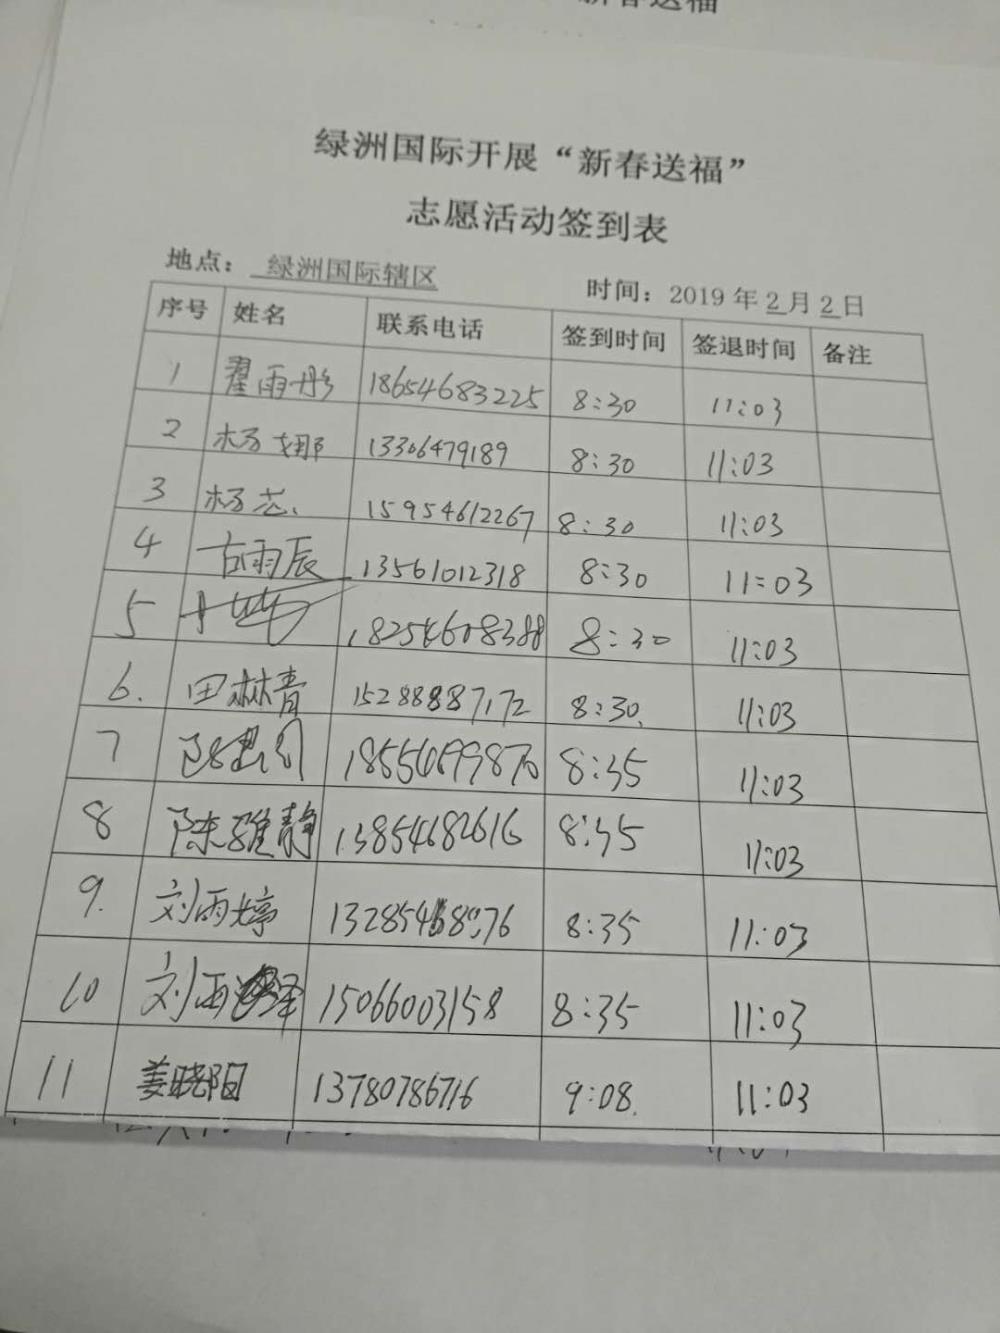 新春送福
绿洲国际开展“新春送福”
志愿活动签到表
地点： 绿洲国际辖区 时间：2019 年 2 月 2 日
序号 姓名 联系电话 签到时间 签退时间 备注
1 翟雨彤 18654683225 8:30 11:03
2 杨娜 13306479189 8:30 11:03
3 杨芯 15954612267 8:30 11:03
4 古雨辰 13561012318 8:30 11:03
5 18254608388 8:30 11:03
6. 田林青 15288887172 8:30. 11:03
7 8:35 11:03
8 陈雅静 13854682616 8:35 11:03
9. 刘雨婷 8:35 11:03
10 刘雨泽 15066003158 8:35 11:03
11 姜晓阳 13780786716 9:08. 11:03